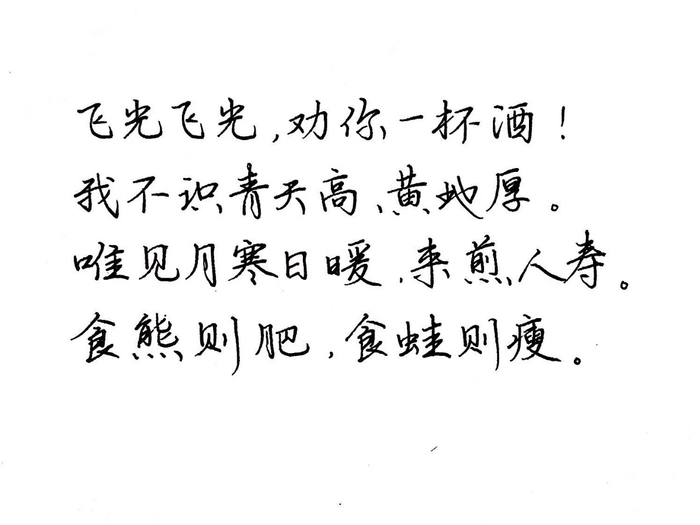 飞光飞光,劝你一杯酒!
我不识青天高、黄地厚。
唯见月寒日暖,来煎人寿。
食熊则肥,食蛙则瘦。